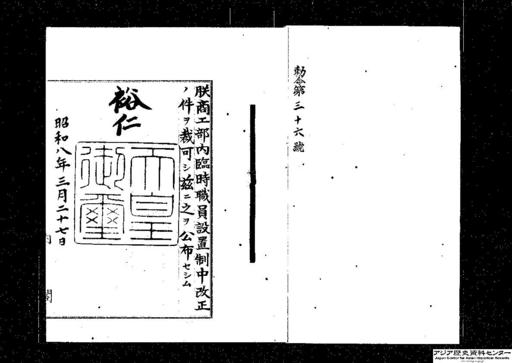 勅令第三十六號
朕商工部內臨時職員設置制中改正
ノ件ヲ裁可シ茲ニ之ヲ公布セシム
裕仁
天皇
御璽
昭和八年三月二十七日
內閣
アジア歴史資料センター
Japan Center for Asian Historical Records